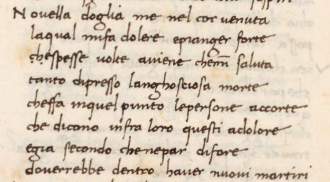 Novella doglia me nel cor venuta
laqual mifa dolere epianger forte
chespesse volte aviene chemi saluta
tanto dipresso langhosciosa morte
cheffa inquel punto lepersone accorte
che dicono infra loro questi adolore
egia secondo chenepar difore
doverrebbe dentro haver nuovi martiri